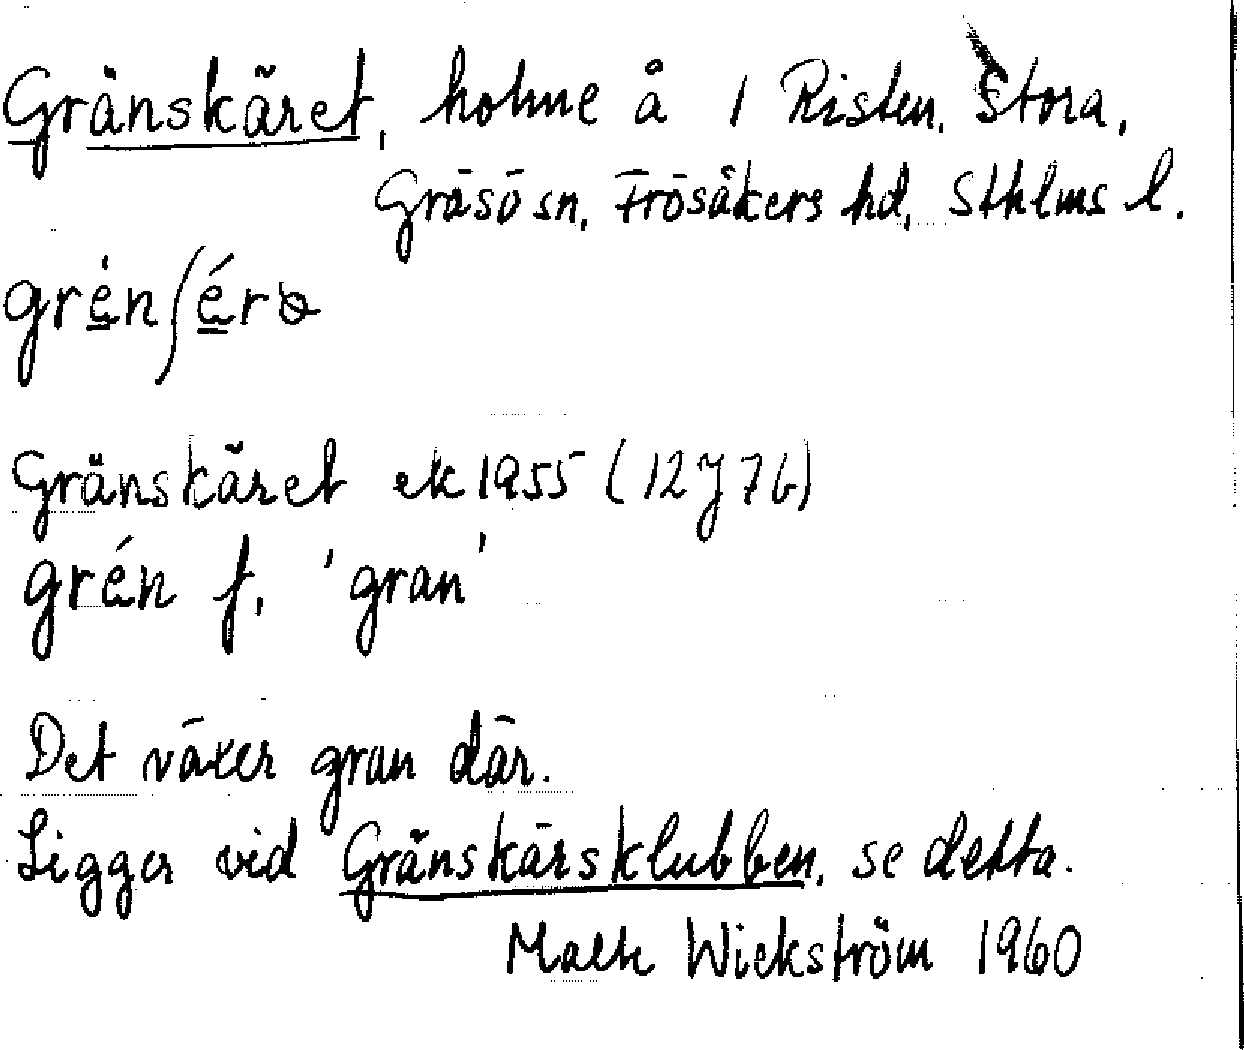 Gränskäret, holme å 1 Risten, Stora,
Gräsö sn, Frösåkers hd, Sthlms l.
grénʃérə
Gränskäret ek 1955 (12J7b)
grén f, 'gran'
Det växer gran där.
Ligger vid Gränskärsklubben, se detta.
Malte Wickström 1960